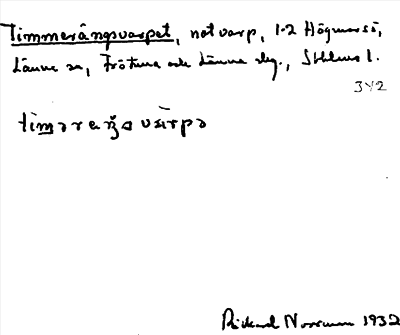 Timmerängsvarpet, notvarp, 1·2 Högmarsö,
Länna sn, Frötuna och Länna skg., Sthlms l.
3Y2
Rickard Norrman 1932